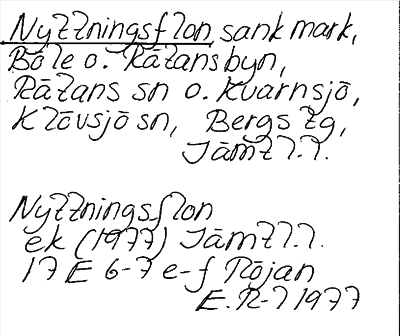 Nyttningsflon, sank mark,
Böle o. Rätansbyn,
Rätans sn o. Kvarnsjö,
Klövsjö sn, Bergs tg,
Jämtl.l.
Nyttningsflon
ek (1977) Jämtl.l.
17 E 6-7 e-f Röjan
E.R-l 1977